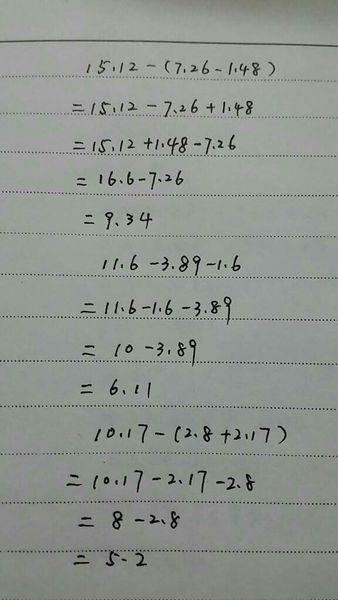 15.12-(7.26-1.48)
=15.12-7.26+1.48
=15.12+1.48-7.26
=16.6-7.26
=9.34
11.6-3.89-1.6
=11.6-1.6-3.89
=10-3.89
=6.11
10.17-(2.8+2.17)
=10.17-2.17-2.8
=8-2.8
=5.2